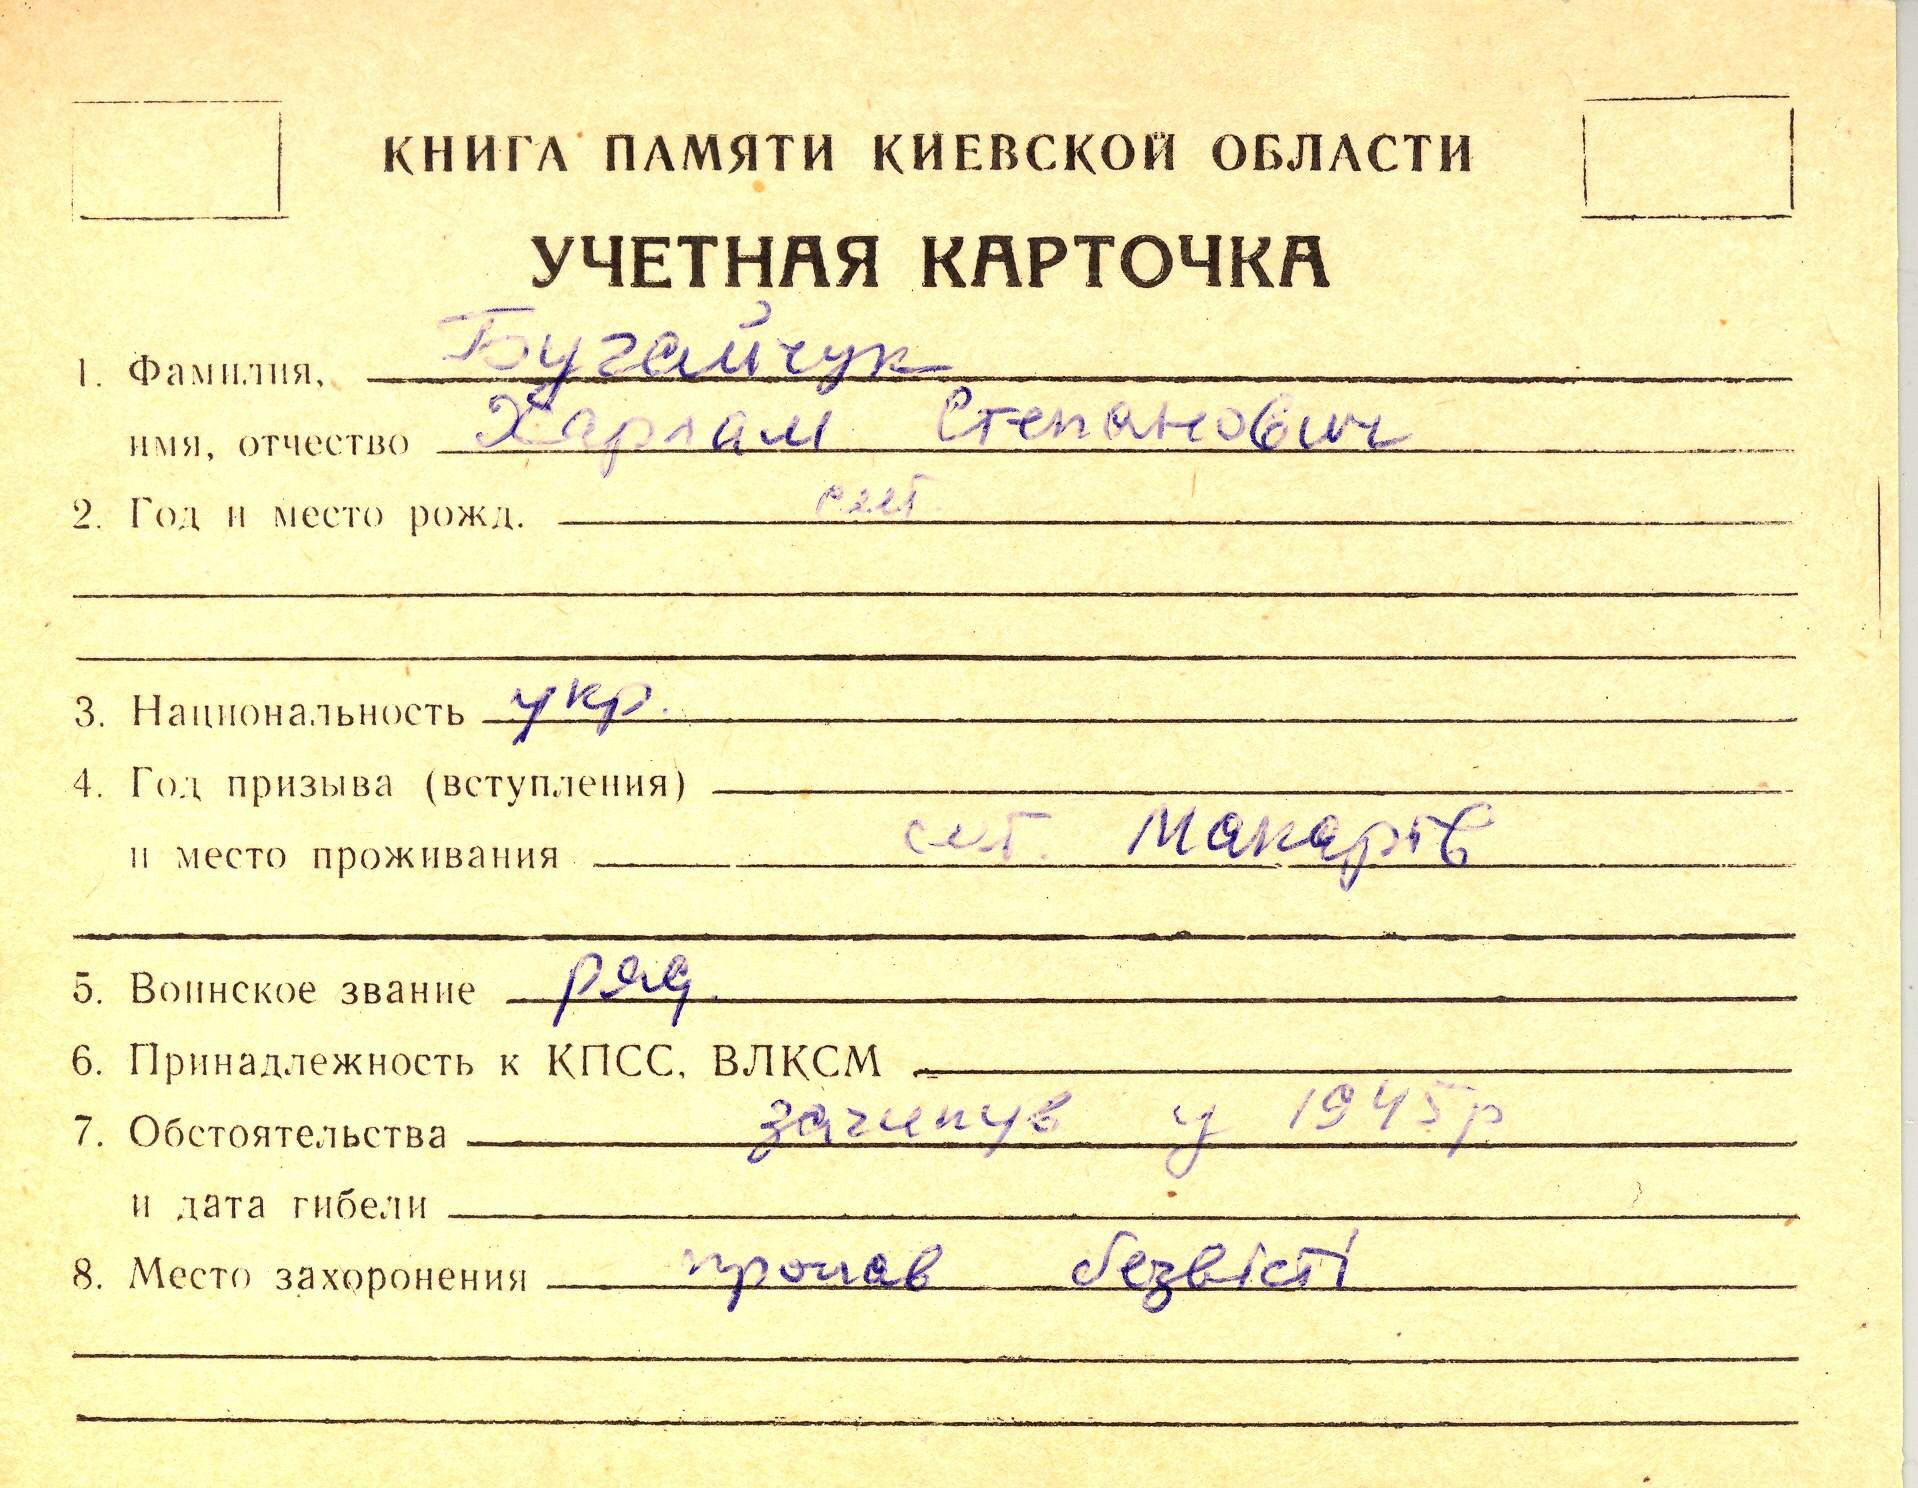 КНИГА ПАМЯТИ КИЕВСКОЙ ОБЛАСТИ
УЧЕТНАЯ КАРТОЧКА
1. Фамилия, Бугайчук
имя, отчество Харлам Степанович
2. Год и место рожд. смт.
3. Национальность укр.
4. Год призыва (вступления)
и место проживания смт. Макарів
5. Воинское звание ряд.
6. Принадлежность к КПСС, ВЛКСМ
7. Обстоятельства загинув у 1945р
и дата гибели
8. Место захоронения пропав безвісті